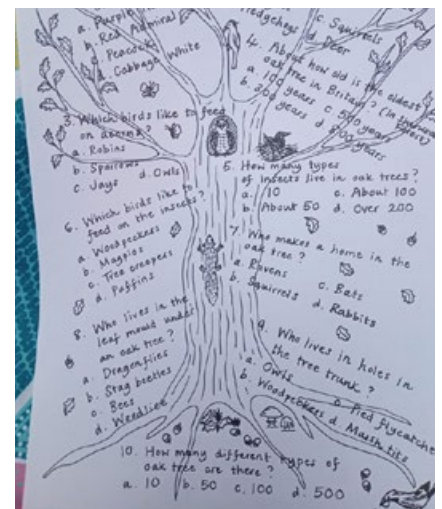 a. Purple
b. Red Admiral
c. Peacock
d. Cabbage White
Hedgehogs
c. Squirrels
d. Deer
3. Which birds like to feed
on acorns?
a. Robins
b. Sparrows
c. Jays d. Owls
4. About how old is the oldest
oak tree in Britain?
a. 100 years c. 500 years
b. 300 years d. years
5. How many types
of insects live in oak trees?
a. 10 c. About 100
b. About 50 d. Over 200
6. Which birds like to
feed on the insects?
a. Woodpeckers
b. Magpies
c. Tree creepers
d. Puffins
7. Who makes a home in the
oak tree?
a. Ravens c. Bats
b. Squirrels d. Rabbits
8. Who lives in the
leaf mould under
an oak tree?
a. Dragonflies
b. Stag beetles
c. Bees
d. Weedlice
9. Who lives in holes in
the tree trunk?
a. Owls c. Pied flycatchers
b. Woodpeckers d. Marsh tits
10. How many different types of
oak tree are there?
a. 10 b. 50 c. 100 d. 500